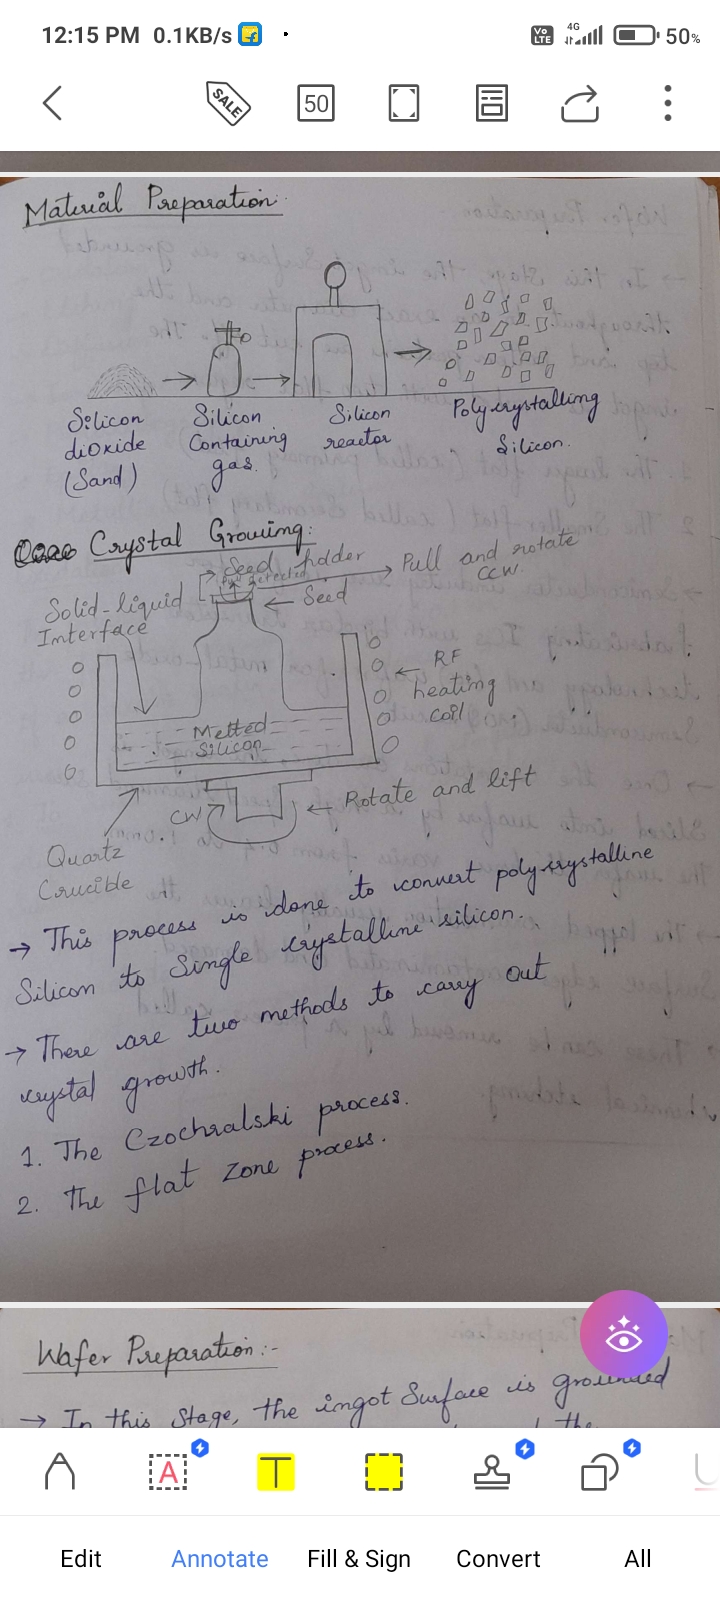 12:15 PM 0.1KB/s
Vo LTE 4G 50%
SALE 50
Material Preparation
Silicon dioxide (Sand)
Silicon Containing gas.
Silicon reactor
Polycrystalling Silicon.
Crystal Growing:
Seed holder
Pull and rotate CCW.
Seed
Solid-liquid Interface
RF heating coil
Melted Silicon
CW
Rotate and lift
Quartz Crucible
→ This process is done to convert polycrystalline
Silicon to Single crystalline silicon.
→ There are two methods to carry out
crystal growth.
1. The Czochralski process.
2. The flat zone process.
Wafer Preparation:-
→ In this Stage, the ingot Surface is grounded
the
A
T
Edit Annotate Fill & Sign Convert All